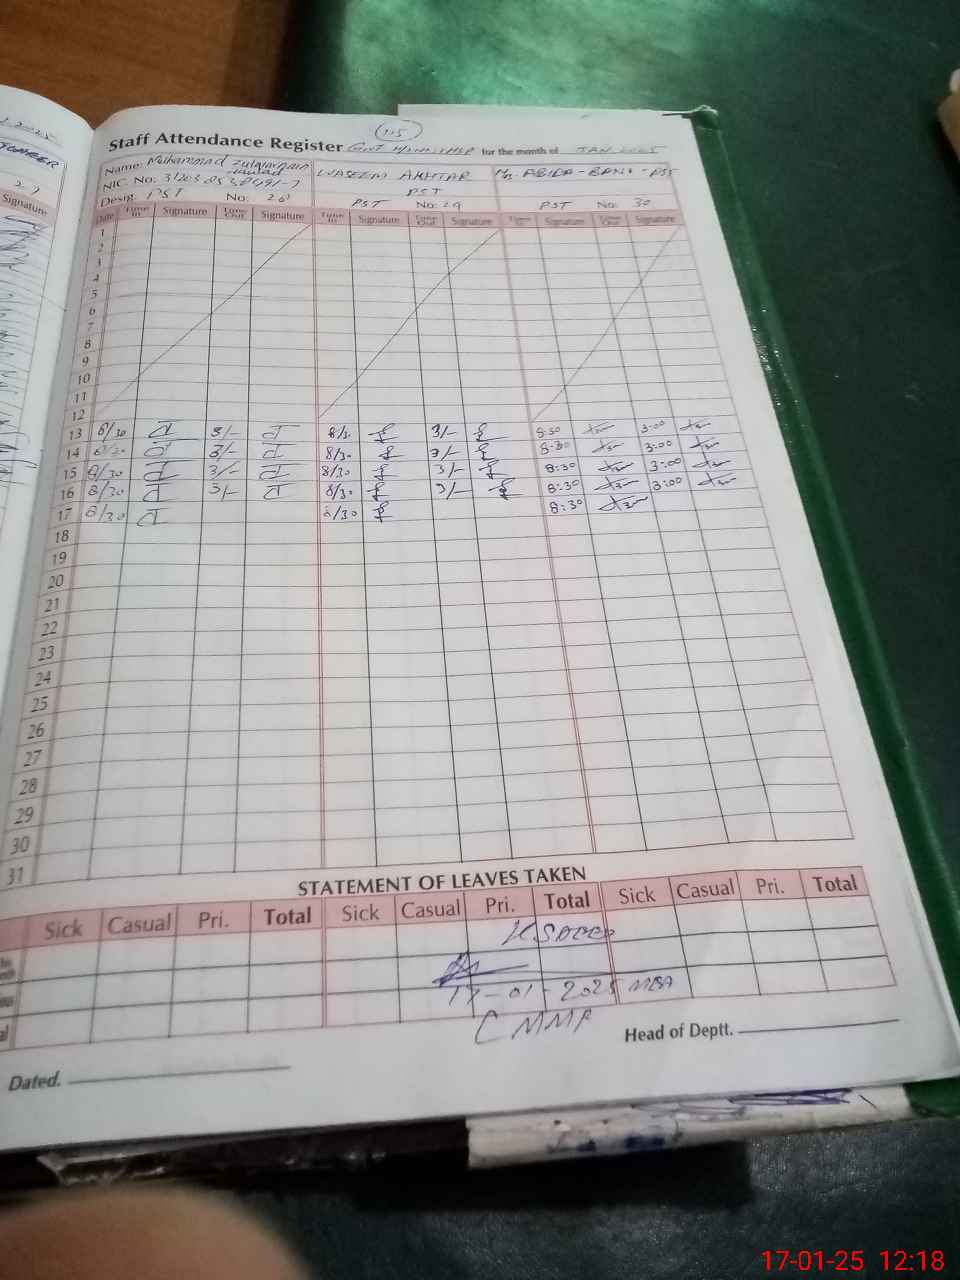 115
Staff Attendance Register for the month of JAN 2025
Name: Muhammad Zulqarnain WASEEM AKHTAR ABIDA-BANO-PST
NIC. No: PST
Desig. PST No: 28 PST No: 29 PST No: 30
Date Time In Signature Time Out Signature Time In Signature Time Out Signature Time In Signature Time Out Signature
1
2
3
4
5
6
7
8
9
10
11
12
13 8/30 3/- 8/30 3/- 8:30 3:00
14 8/30 3/- 8/30 3/- 8:30 3:00
15 8/30 3/- 8/30 3/- 8:30 3:00
16 8/30 3/- 8/30 3/- 8:30 3:00
17 8/30 8/30 8:30
18
19
20
21
22
23
24
25
26
27
28
29
30
31
STATEMENT OF LEAVES TAKEN
Sick Casual Pri. Total Sick Casual Pri. Total Sick Casual Pri. Total
17-01-2025 MEA
Head of Deptt.
Dated.
Signature
17-01-25 12:18